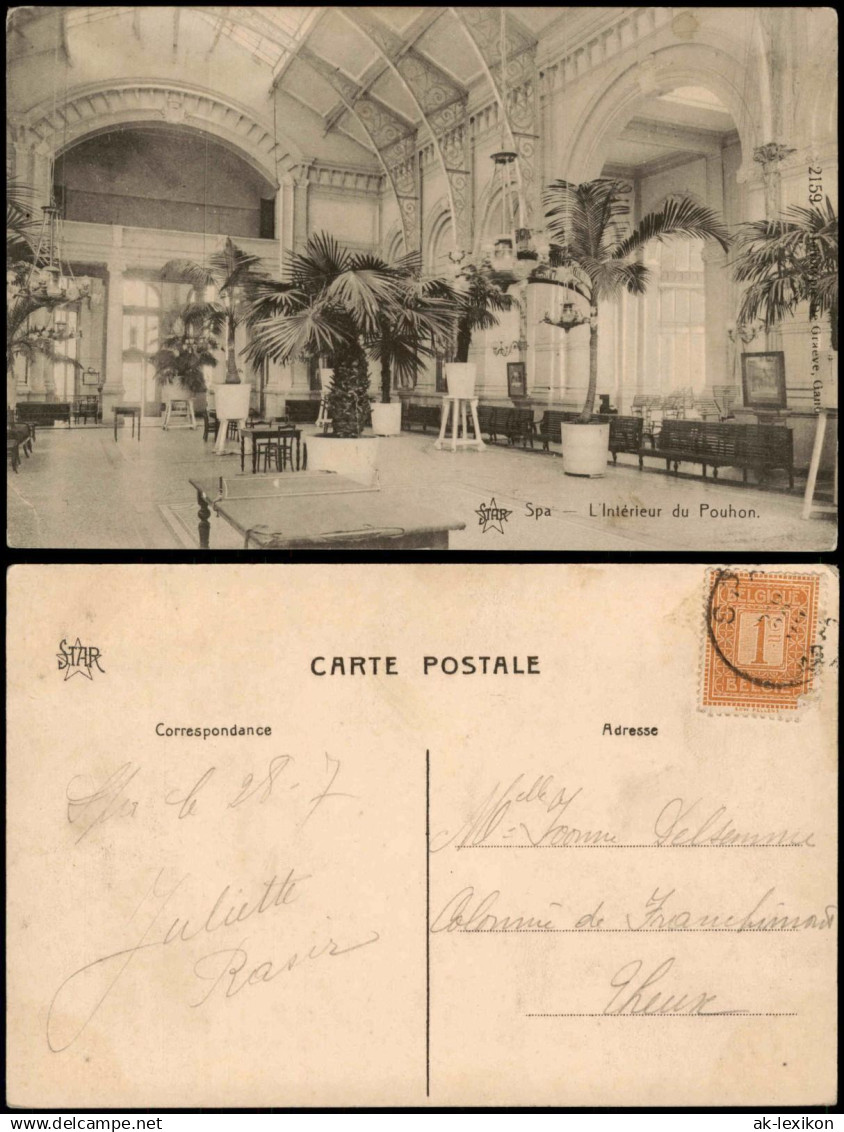 2159
Graeve, Gand
STAR Spa — L'Intérieur du Pouhon.
STAR
CARTE POSTALE
BELGIQUE
1
BELGIË
Correspondance
Adresse
Spa le 28-7
Juliette
Rasir
Melle Yvonne Delsemme
Colonie de Franchimont
Theux
www.delcampe.net
ak-lexikon